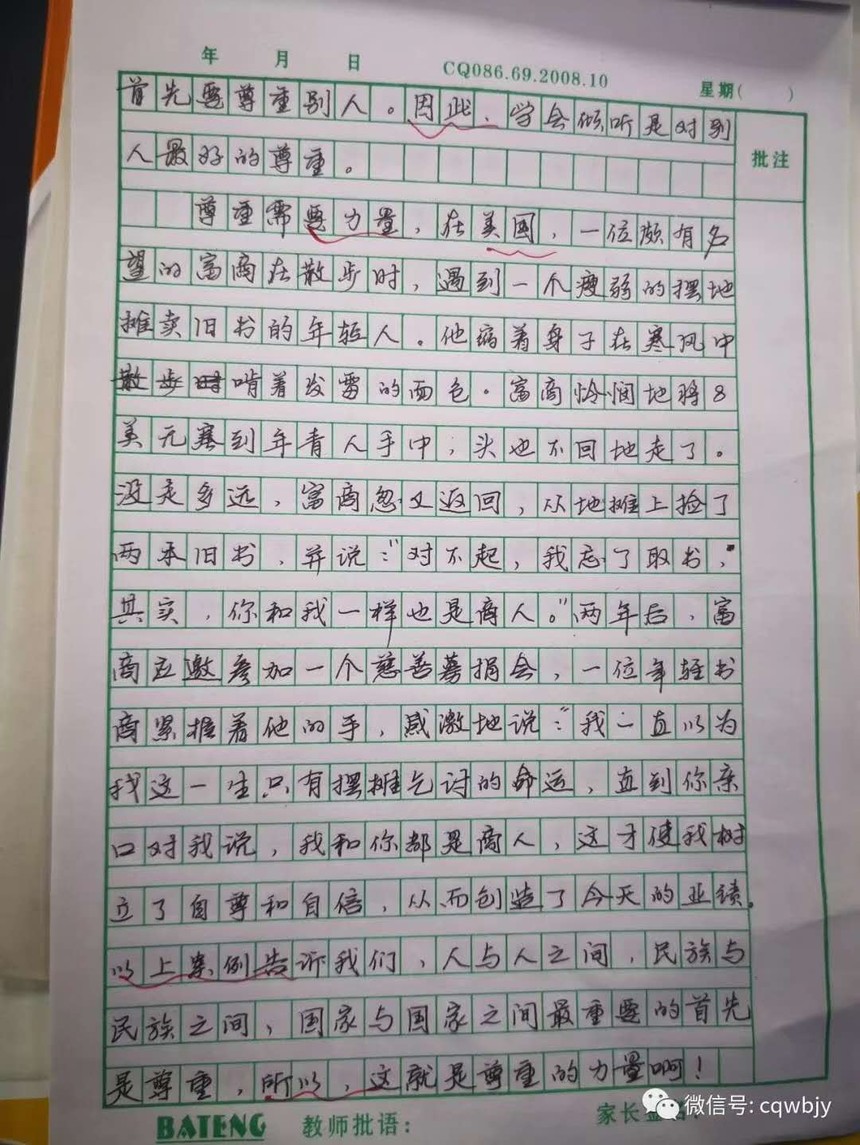 年 月 日 CQ086.69.2008.10 星期( )
批注
首先要尊重别人。因此，学会倾听是对别
人最好的尊重。
尊重需要力量，在美国，一位颇有名
望的富商在散步时，遇到一个瘦弱的摆地
摊卖旧书的年轻人。他缩着身子在寒风中
啃着发霉的面包。富商怜悯地将8
美元塞到年青人手中，头也不回地走了。
没走多远，富商忽又返回，从地摊上捡了
两本旧书，并说："对不起，我忘了取书，
其实，你和我一样也是商人。"两年后，富
商应邀参加一个慈善募捐会，一位年轻书
商紧握着他的手，感激地说："我一直以为
我这一生只有摆摊乞讨的命运，直到你亲
口对我说，我和你都是商人，这才使我树
立了自尊和自信，从而创造了今天的业绩。
以上案例告诉我们，人与人之间，民族与
民族之间，国家与国家之间最重要的首先
是尊重，所以，这就是尊重的力量啊！
BATENG 教师批语： 家长
微信号: cqwbjy